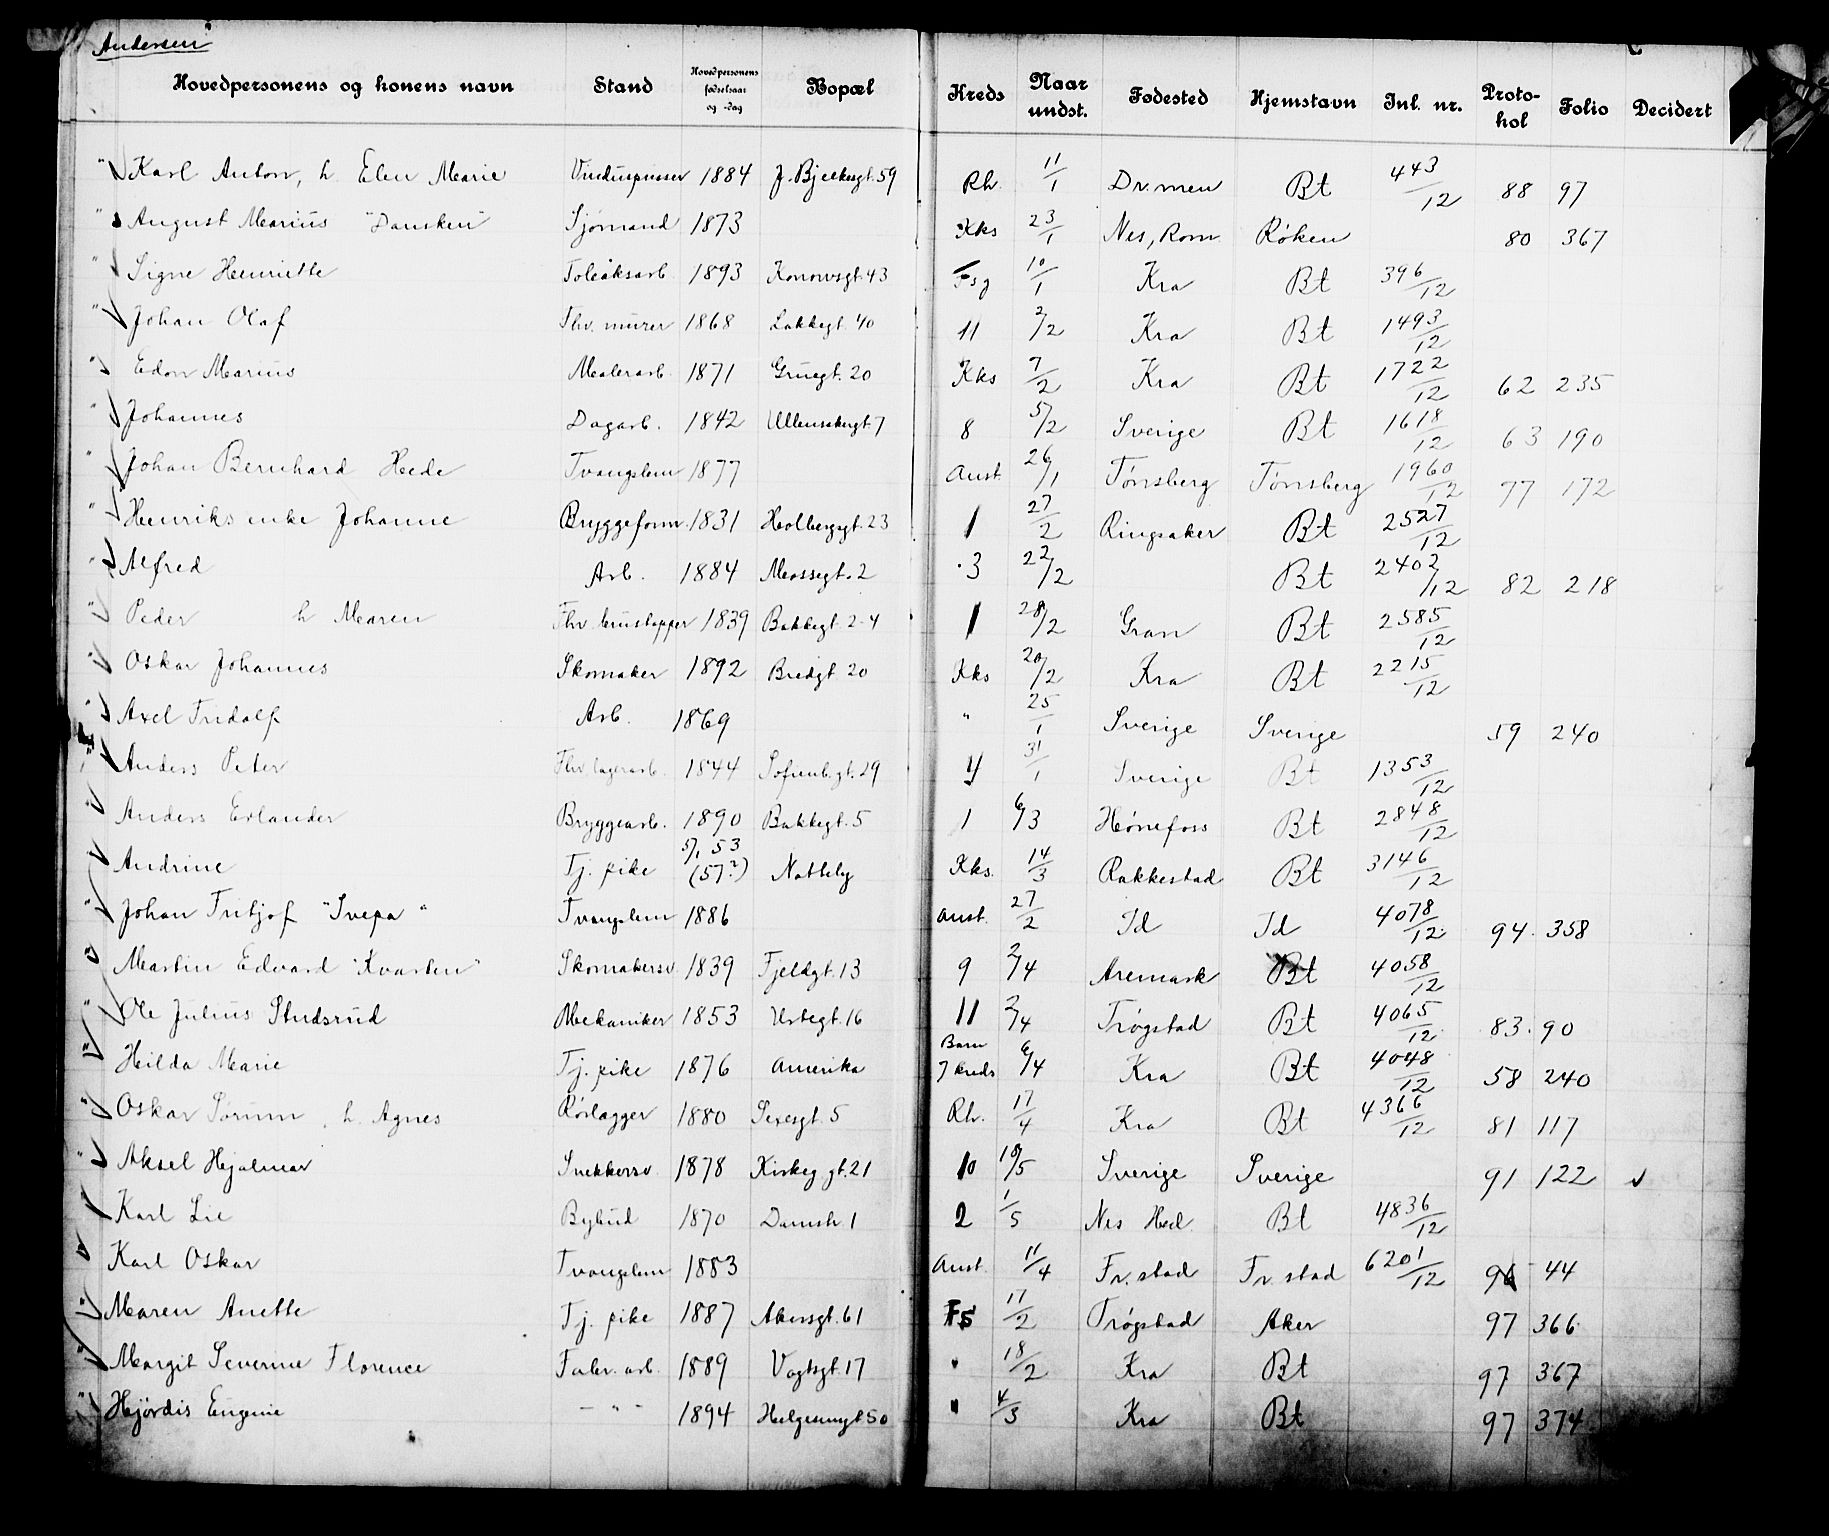 Andersen
Hovedpersonens og konens navn Stand Hovedpersonens fødselsaar og -dag Bopæl Kreds Naar undst. Fødested Hjemstavn Inl. nr. Protokol Folio Decidert
" Karl Anton, h. Elen Marie Vinduspusser 1884 J. Bjelkesgt. 59 Rh. 11/1 Dr.men Bt 443/12 88 97
" August Marius "Dansken" Sjømand 1873 Kks 23/1 Nes, Rom. Røken 80 367
" Signe Henriette Tobaksarb. 1893 Konowsgt. 43 Fsg 10/1 Kra Bt 396/12
" Johan Olaf Fhv. murer 1868 Lakkegt. 40 11 2/2 Kra Bt 1493/12
" Edon Marius Malerarb. 1871 Gruegt. 20 Kks 7/2 Kra Bt 1722/12 62 235
" Johannes Dagarb. 1842 Ullensakergt. 7 8 5/2 Sverige Bt 1618/12 63 190
" Johan Bernhard Hede Tvangslem 1877 Anst. 26/1 Tønsberg Tønsberg 1960/12 77 172
" Henriks enke Johanne Bryggeform. 1831 Holbergsgt. 23 1 27/2 Ringsaker Bt 2527/12
" Alfred Arb. 1884 Mossegt. 2 3 22/2 Bt 2402/12 82 218
" Peder h Maren Fhv. 1839 Bakkegt. 2-4 1 28/2 Gran Bt 2585/12
" Oskar Johannes Skomaker 1892 Bredgt. 20 Kks 20/2 Kra Bt 2215/12
" Axel Fridolf Arb. 1869 " 25/1 Sverige Sverige 59 240
" Anders Peter Fhv. lagerarb. 1844 Sofienb.gt. 29 4 31/1 Sverige Bt 1353/12
" Anders Erlander Bryggearb. 1890 Bakkegt. 5 1 6/3 Hønefoss Bt 2848/12
" Andrine Tj. pike 5/1 53 (57?) Notteby Kks. 14/3 Rakkestad Bt 3146/12
" Johan Fritjof "Svepa" Tvangslem 1886 Anst. 27/2 Id Id 4078/12 94. 358
" Martin Edvard "Kvarten" Skomakersv. 1839 Fjeldgt. 13 9 2/4 Aremark Bt 4058/12
" Ole Julius Studsrud Mekaniker 1853 Urtegt. 16 11 2/4 Trøgstad Bt 4065/12 83. 90
" Hilda Marie Tj. pike 1876 Amerika Barn 7 kreds 6/4 Kra Bt 4048/12 58 240
" Oskar Sørum, h. Agnes Rørlægger 1880 Sexesgt. 5 Rh. 17/4 Kra Bt 4366/12 81 117
" Aksel Hjalmar Snekkersv. 1878 Kirkeg gt. 21 10 10/5 Sverige Sverige 91 122 ✓
" Karl Lie Bybud 1870 Damstr. 1 2 1/5 Nes Hed. Bt 4836/12
" Karl Oskar Tvangslem 1883 Anst. 11/4 Fr.stad Fr.stad 6201/12 96 44
" Maren Anette Tj. pike 1887 Akersgt. 61 Fs 17/2 Trøgstad Aker 97 366
" Margit Severine Florence Fabr. arb. 1889 Vogtsgt. 17 " 18/2 Kra Bt 97 367
" Hjørdis Eugenie - " - 1894 Helgesensgt. 50 " 4/3 Kra Bt 97 374